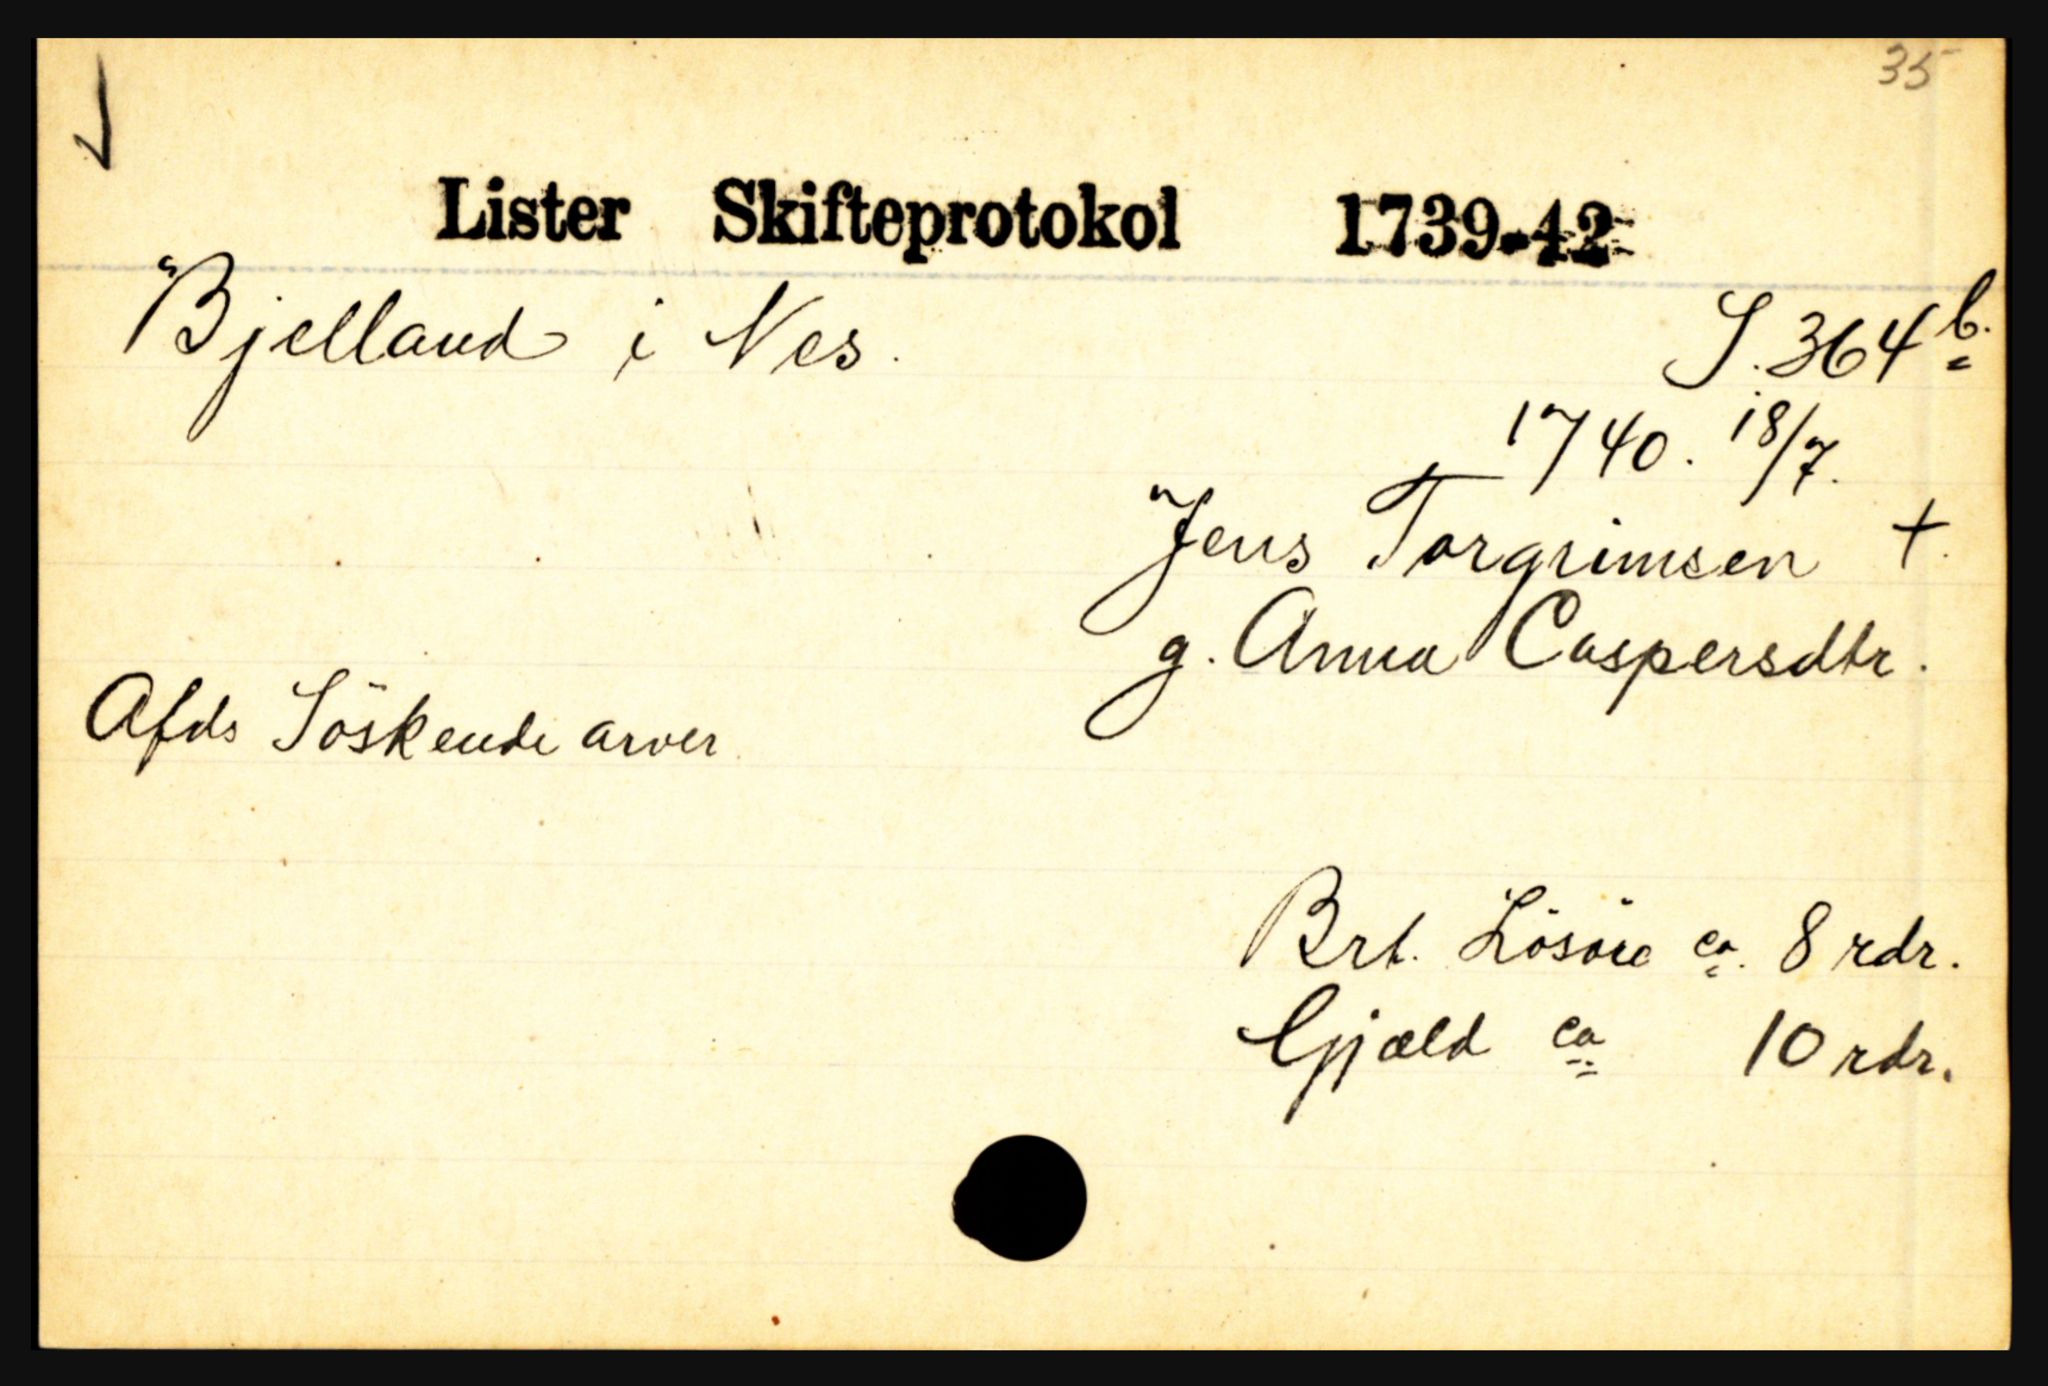 35
Lister Skifteprotokol 1739-42
Bjelland i Nes.
S. 364 b.
1740. 18/7.
Jens Torgrimsen +.
g. Anna Caspersdtr.
Afds Söskende arver
Brt. Lösöre ca. 8 rdr.
Gjæld ca 10 rdr.